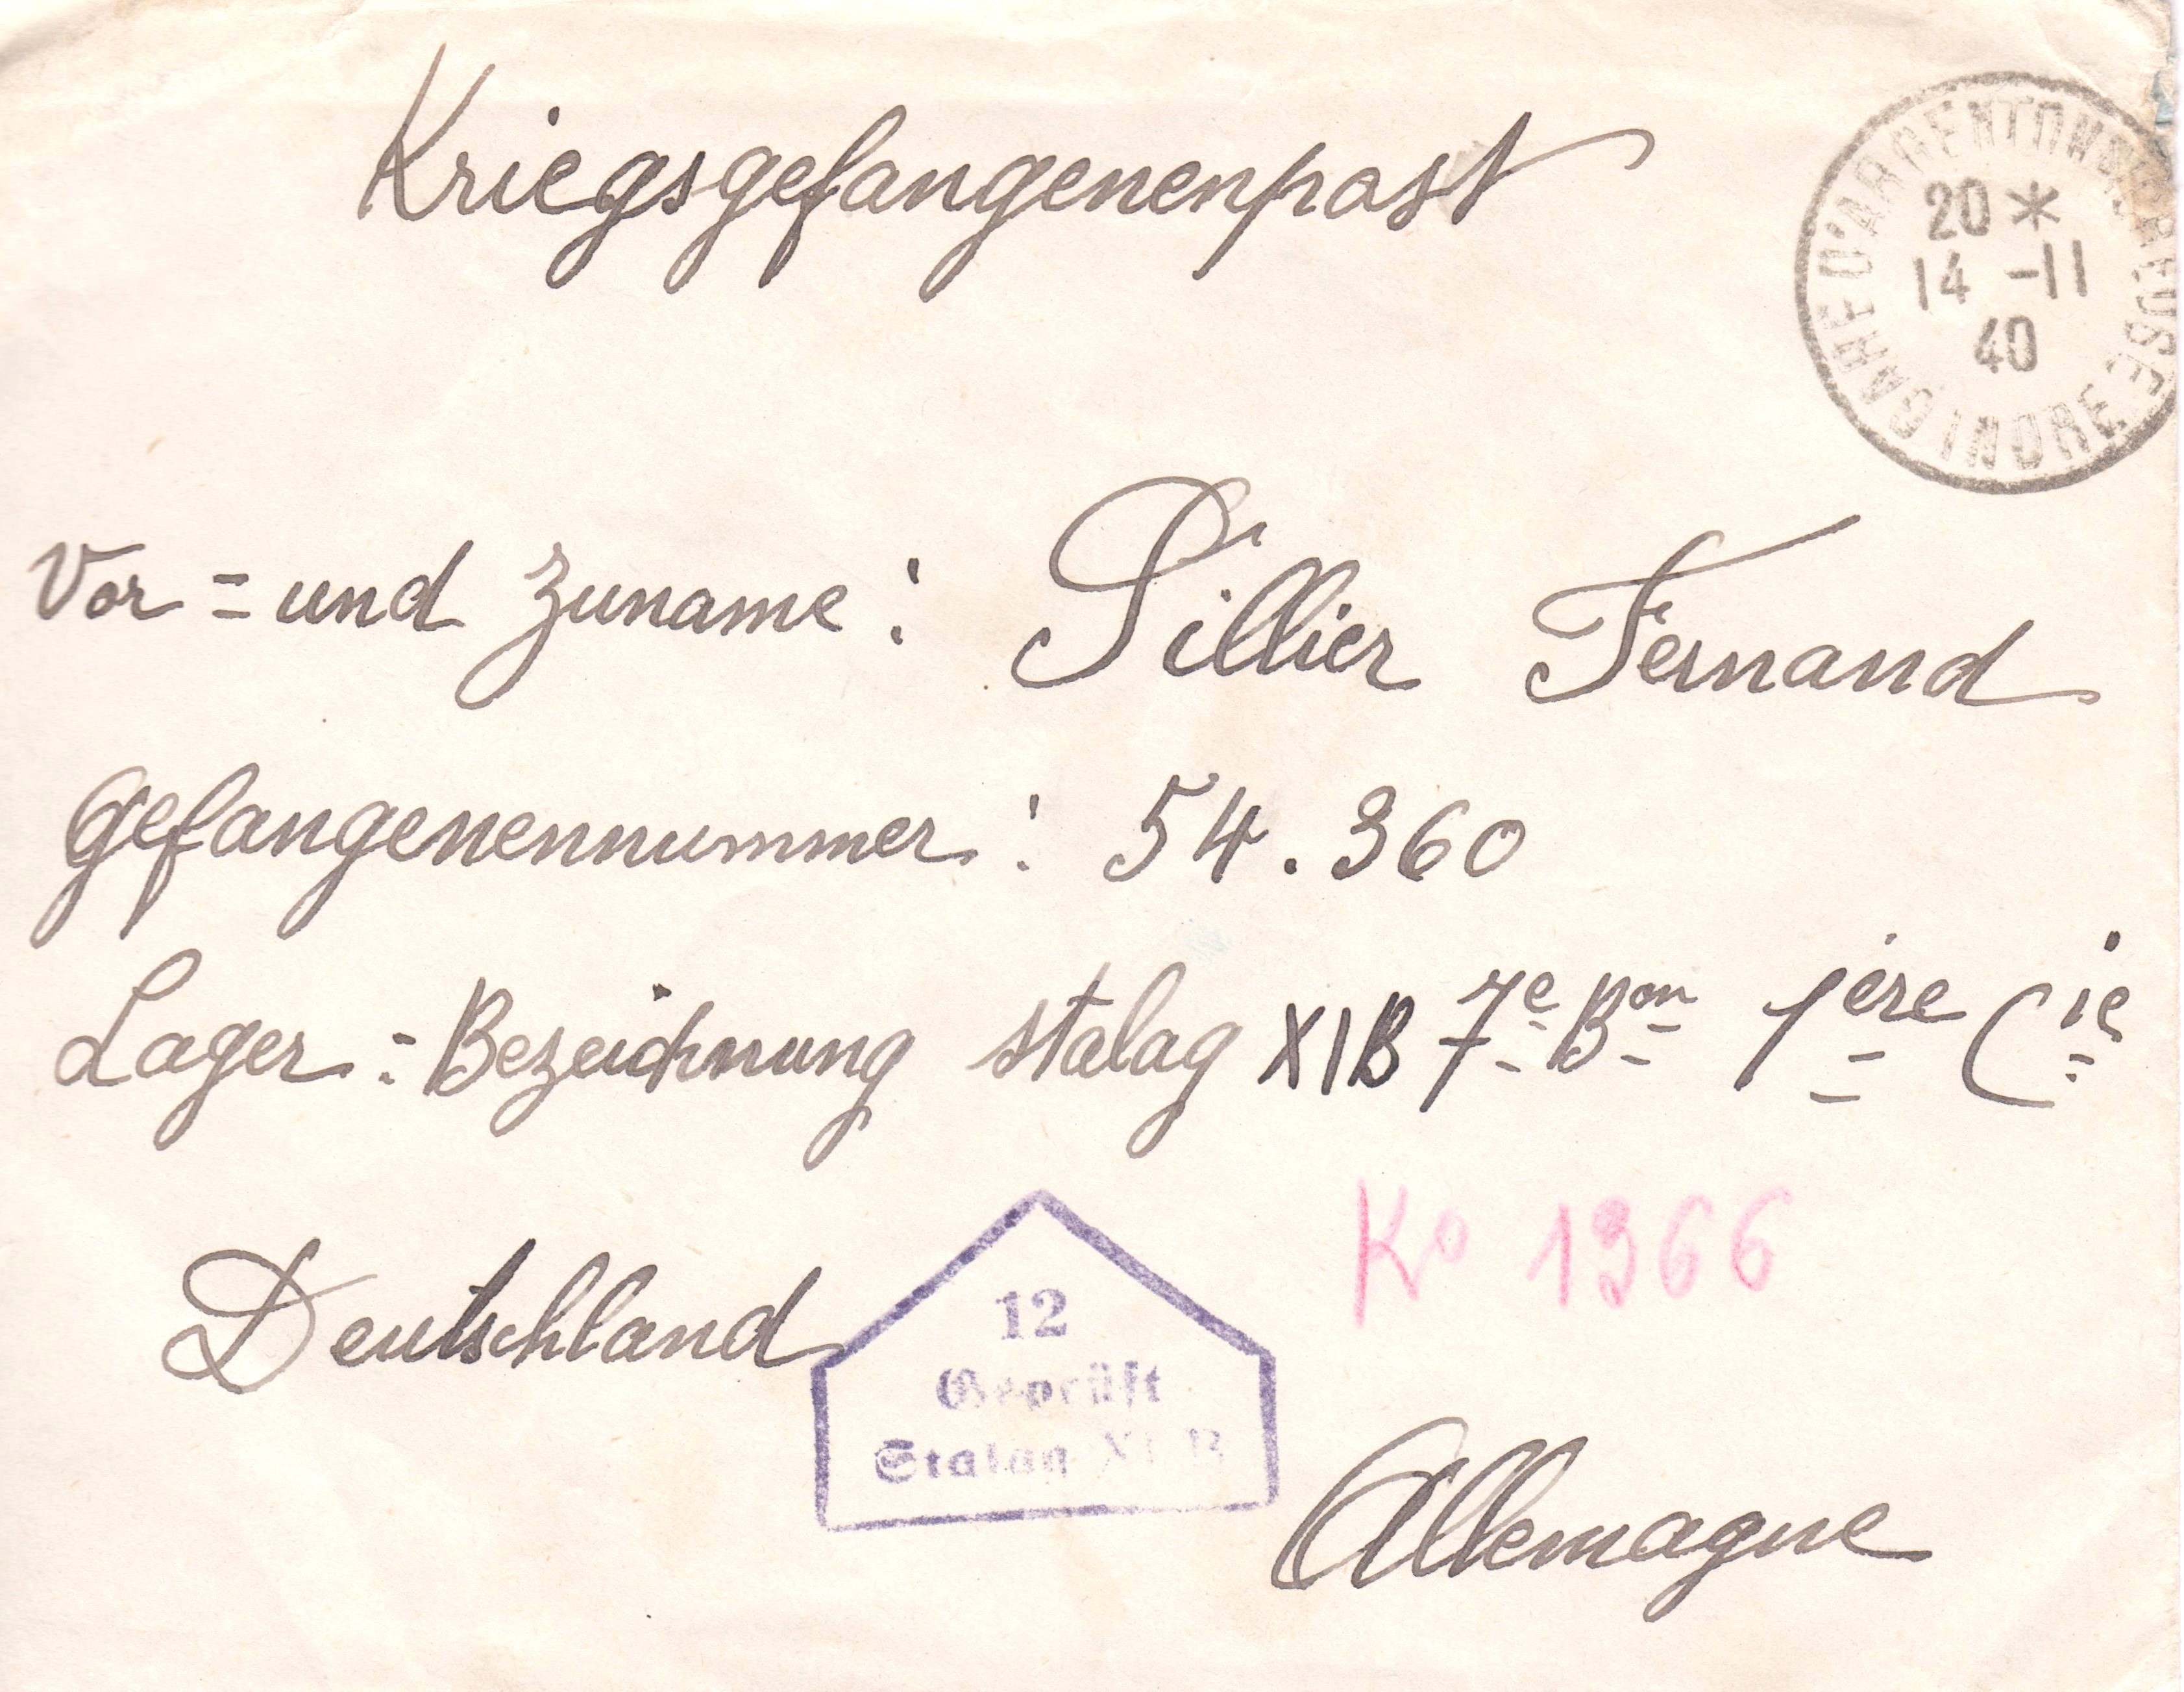 Kriegsgefangenenpost
GARE D'ARGENTON SUR CREUSE
20*
14-11
40
INDRE
Vor = und Zuname : Pillier Fernand
Gefangenennummer : 54.360
Lager = Bezeichnung stalag XIB 7e Bon 1ère Cie
Ko 1366
Deutschland
12
Geprüft
Stalag XI B
Allemagne